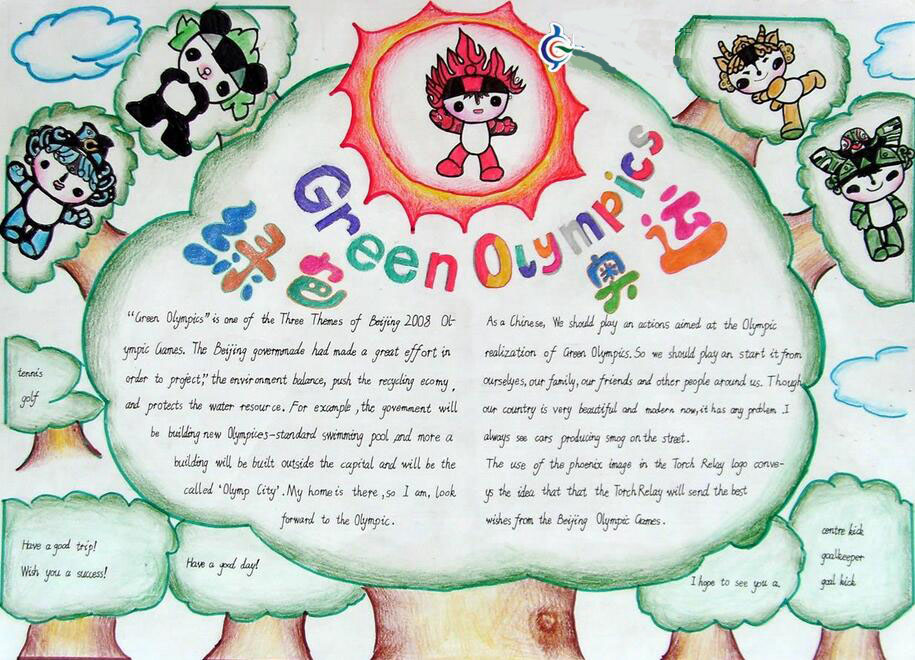 Green Olympics
绿色奥运
"Green Olympics" is one of the Three Themes of Beijing 2008 Ol-
ympic Games. The Beijing govermmade had made a great effort in
order to project," the environment balance, push the recycling ecomy,
and protects the water resource. For example, the government will
be building new Olympics-standard swimming pool and more a
building will be built outside the capital and will be the
called 'Olymp City'. My home is there, so I am, look
forward to the Olympic.
As a Chinese, We should play an actions aimed at the Olympic
realization of Green Olympics. So we should play an start it from
ourselyes, our family, our friends and other people around us. Though
our country is very beautiful and modern now, it has any problem I
always see cars producing smog on the street.
The use of the phoenix image in the Torch Relay logo conve-
ys the idea that that the Torch Relay will send the best
wishes from the Beijing Olympic Games.
tennis
golf
Have a good trip!
Wish you a success!
Have a good day!
I hope to see you a
centre kick
goalkeeper
goal kick